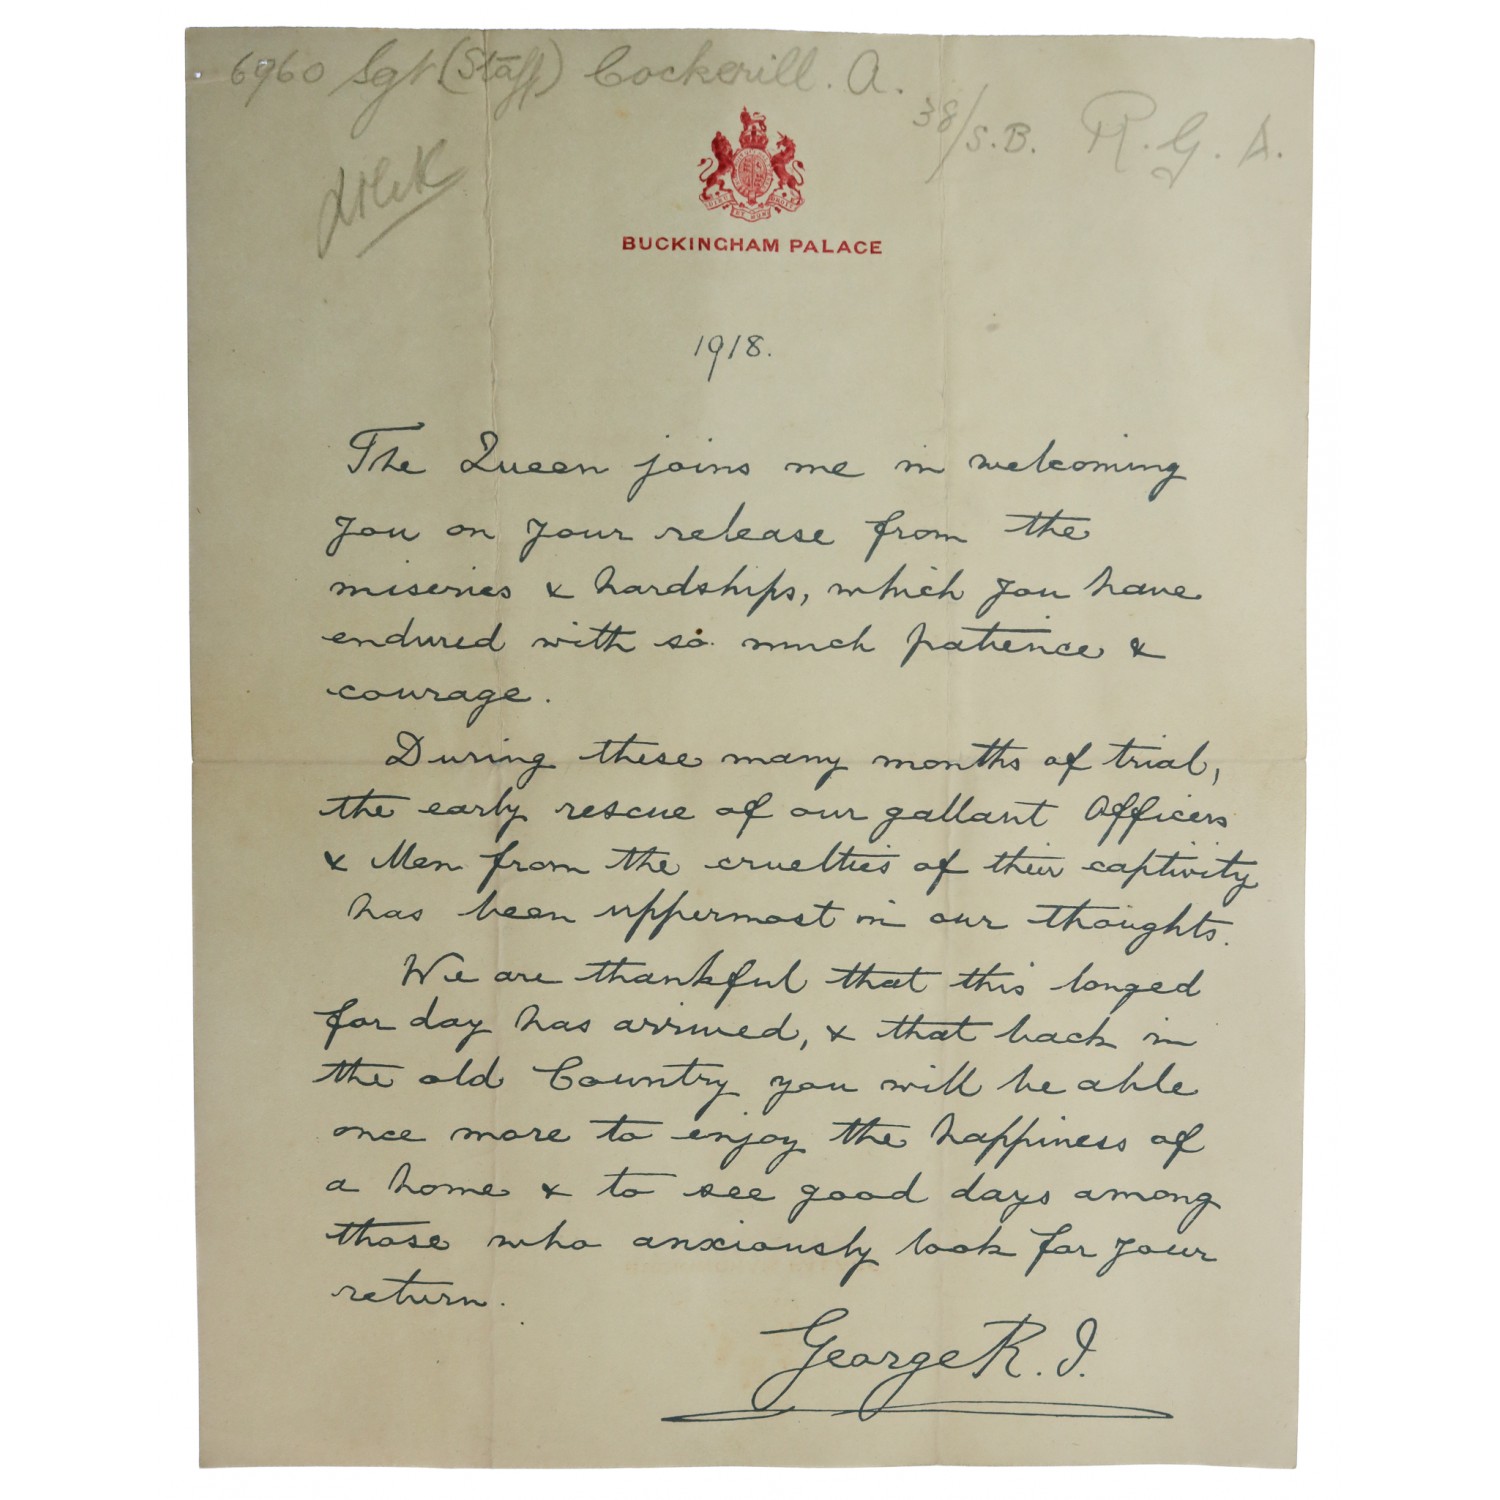 6960 Sgt (Staff) Cockerill. A.
38/S.B. R.G.A.
BUCKINGHAM PALACE
1918.
The Queen joins me in welcoming
you on your release from the
miseries & hardships, which you have
endured with so much patience &
courage.
During these many months of trial,
the early rescue of our gallant Officers
& Men from the cruelties of their captivity
has been uppermost in our thoughts.
We are thankful that this longed
for day has arrived, & that back in
the old Country you will be able
once more to enjoy the happiness of
a home & to see good days among
those who anxiously look for your
return.
George R.I.